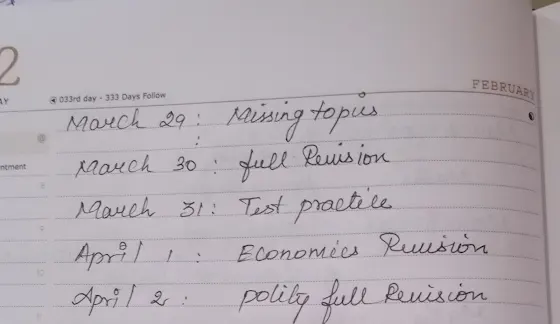 2
AY
033rd day - 333 Days Follow
FEBRUARY
March 29: Missing topics
ntment
March 30: full Revision
9
March 31: Test practice
April 1: Economics Revision
10
April 2: polity full Revision